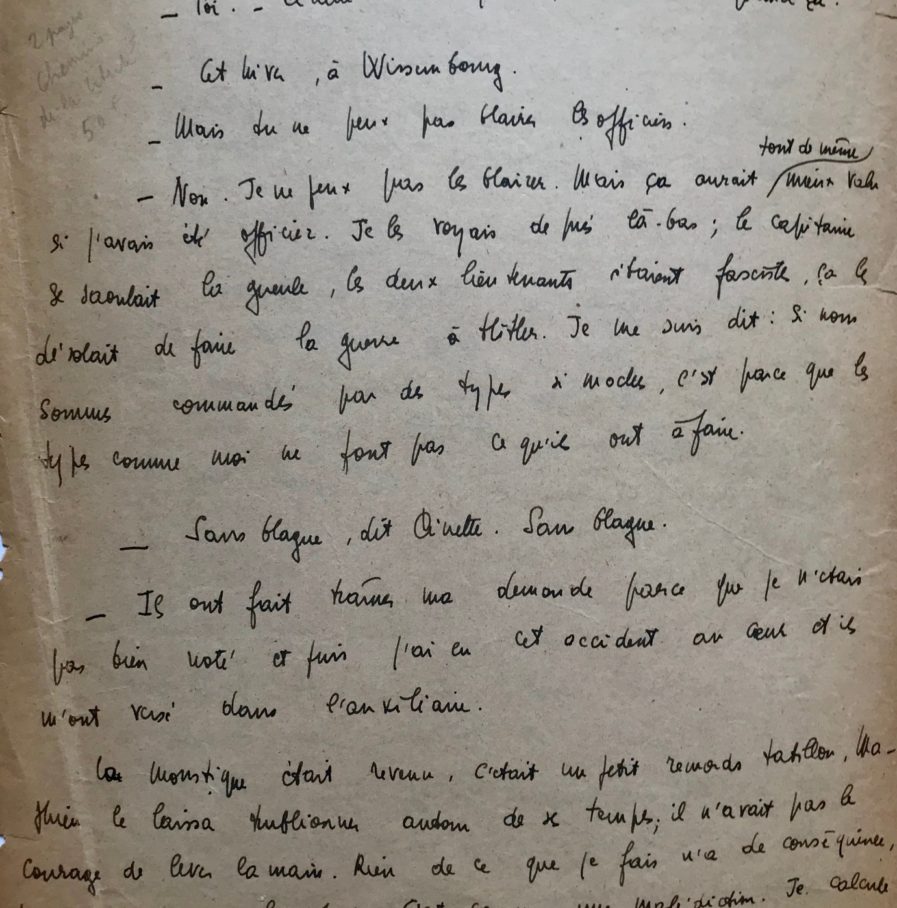 — Toi. —
2 pages
Chemins
de la liberté
50 f
— Cet hiver, à Wissembourg.
— Mais tu ne peux pas blairer les officiers.
tout de même
— Non. Je ne peux pas les blairer. Mais ça aurait mieux valu
si j'avais été officier. Je les voyais de près là-bas ; le capitaine
se saoulait la gueule, les deux lieutenants étaient fascistes, ça les
désolait de faire la guerre à Hitler. Je me suis dit : si nous
sommes commandés par des types si moches, c'est parce que les
types comme moi ne font pas ce qu'ils ont à faire.
— Sans blague, dit Pinette. Sans blague.
— Ils ont fait traîner ma demande parce que je n'étais
pas bien noté et puis j'ai eu cet accident au cœur et ils
m'ont versé dans l'auxiliaire.
Le moustique était revenu, c'était un petit remords tatillon, Ma-
thieu le laissa tourbillonner autour de ses tempes ; il n'avait pas le
courage de lever la main. Rien de ce que je fais n'a de conséquence,
une malédiction. Je calcule